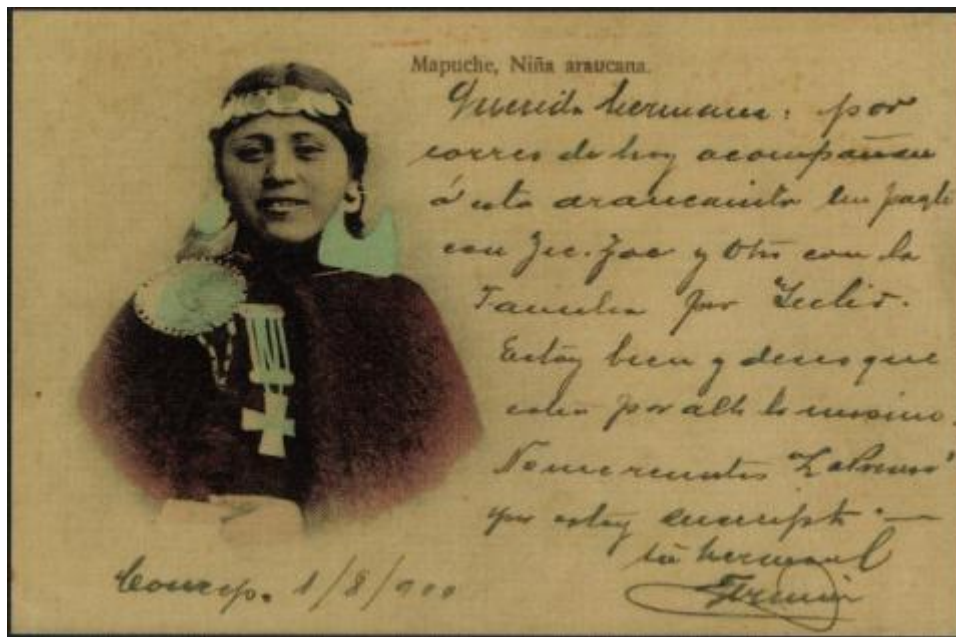 Mapuche, Niña araucana.
Querida hermana: por
correo de hoy acompañan
á esta araucanita un
con y Otro con la
por Julio.
Estoy bien y deseo que
estén por allí lo mismo.
No me remitas "La Prensa"
que estoy
tu hermano
Fermin
Concep. 1/8/900